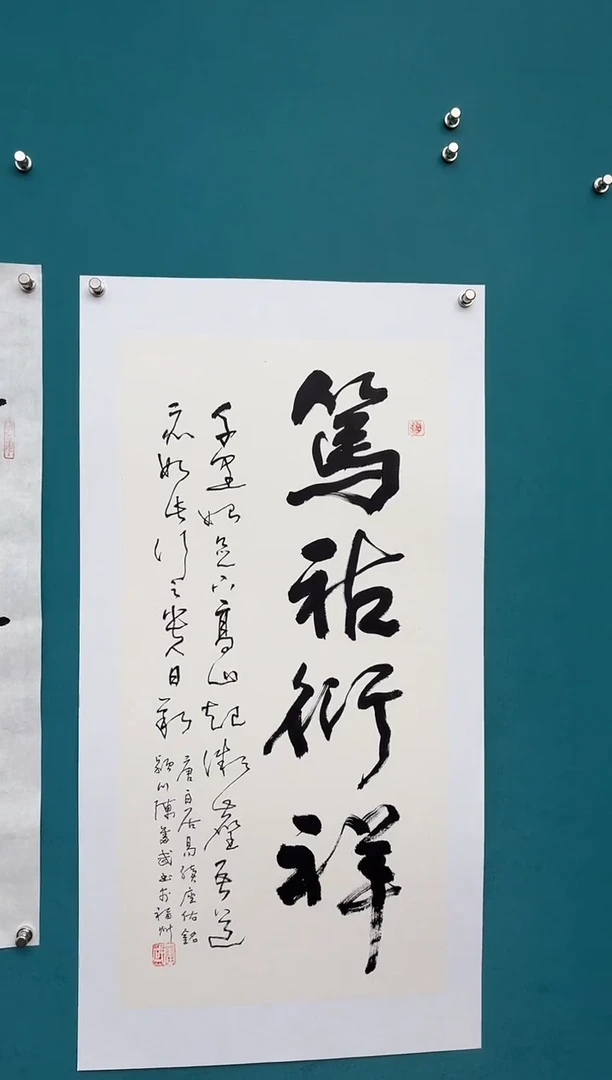 篤祜衍祥
千里始足下高山起微塵吾道
亦如此行之貴日新
唐白居易續座佑銘
陳 書於福州